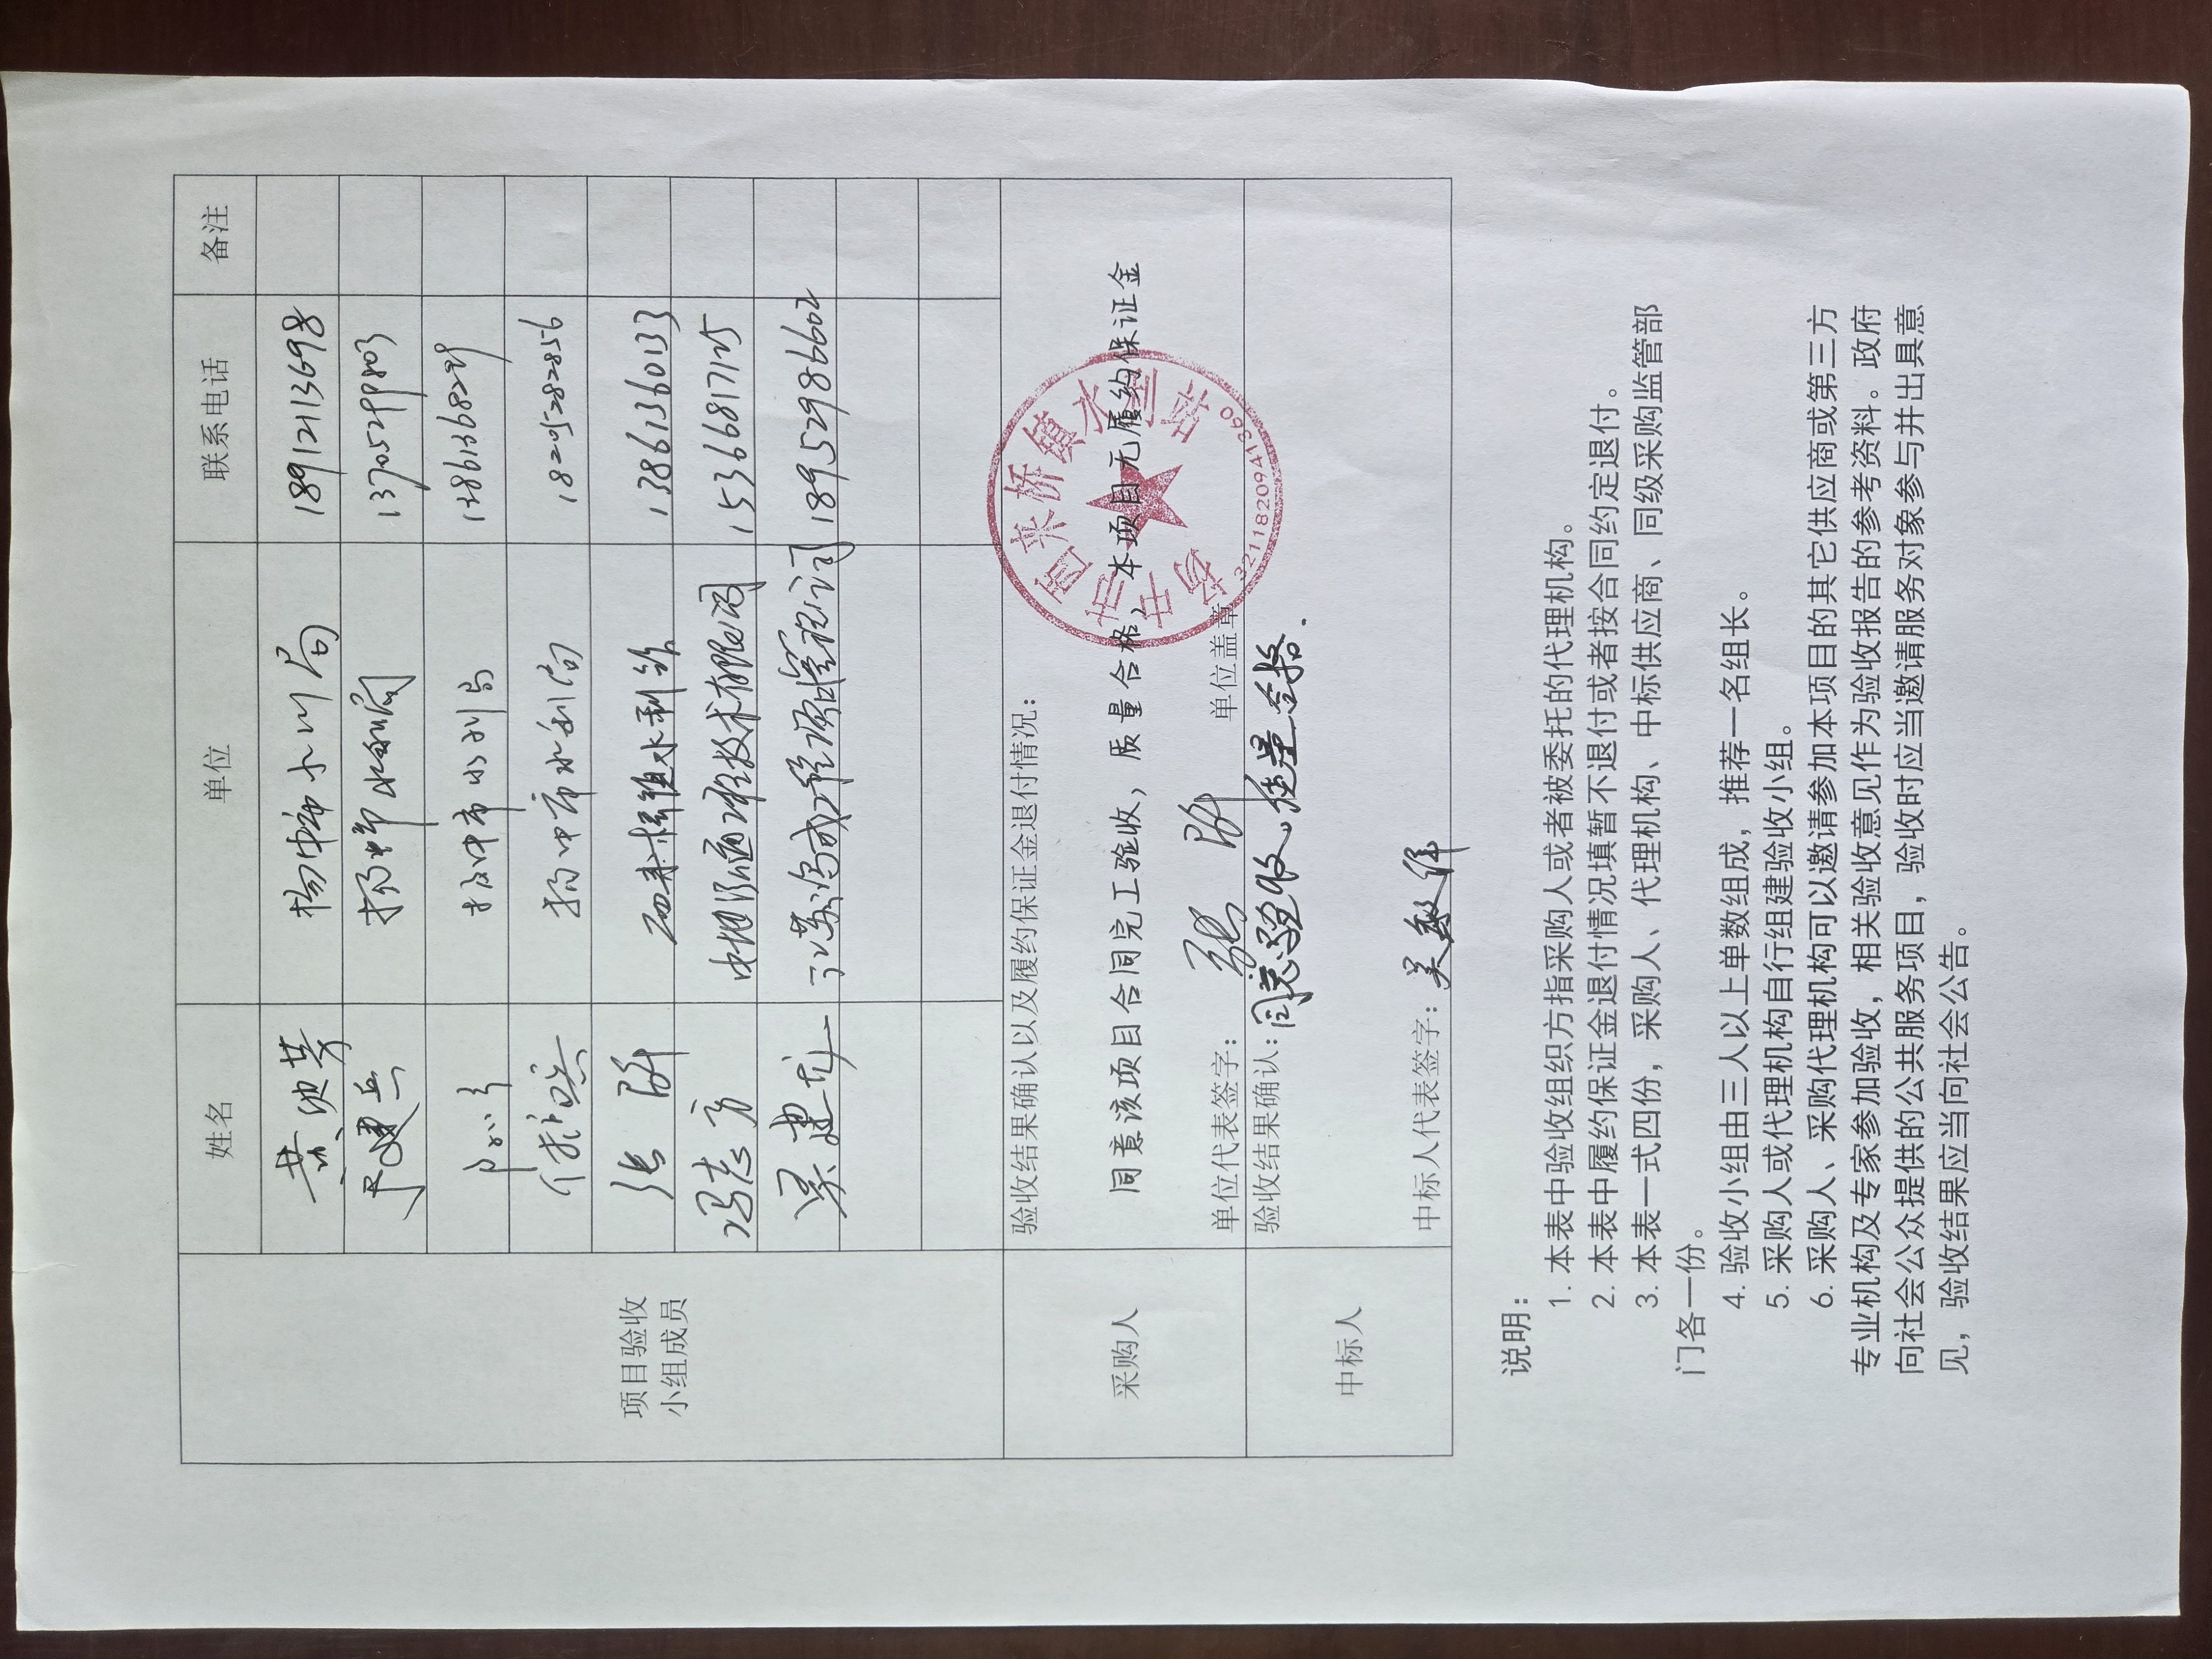 姓名 单位 联系电话 备注
项目验收
小组成员
扬中市水利局 18912113698
扬中市水利局 13705299803
扬中市水利局
扬中市水利局 18205282856
张 西来桥镇水利站 13861360133
冯志方 15366817125
梁建龙 18952986602
采购人
验收结果确认以及履约保证金退付情况：
同意该项目合同完工验收，质量合格，本项目无履约保证金
单位代表签字： 张 单位盖章
扬中市西来桥镇水利站
3211820941390
中标人
验收结果确认：同意验收，质量合格.
中标人代表签字：
说明：
1. 本表中验收组织方指采购人或者被委托的代理机构。
2. 本表中履约保证金退付情况填暂不退付或者按合同约定退付。
3. 本表一式四份，采购人、代理机构、中标供应商、同级采购监管部
门各一份。
4. 验收小组由三人以上单数组成，推荐一名组长。
5. 采购人或代理机构自行组建验收小组。
6. 采购人、采购代理机构可以邀请参加本项目的其它供应商或第三方
专业机构及专家参加验收，相关验收意见作为验收报告的参考资料。政府
向社会公众提供的公共服务项目，验收时应当邀请服务对象参与并出具意
见，验收结果应当向社会公告。